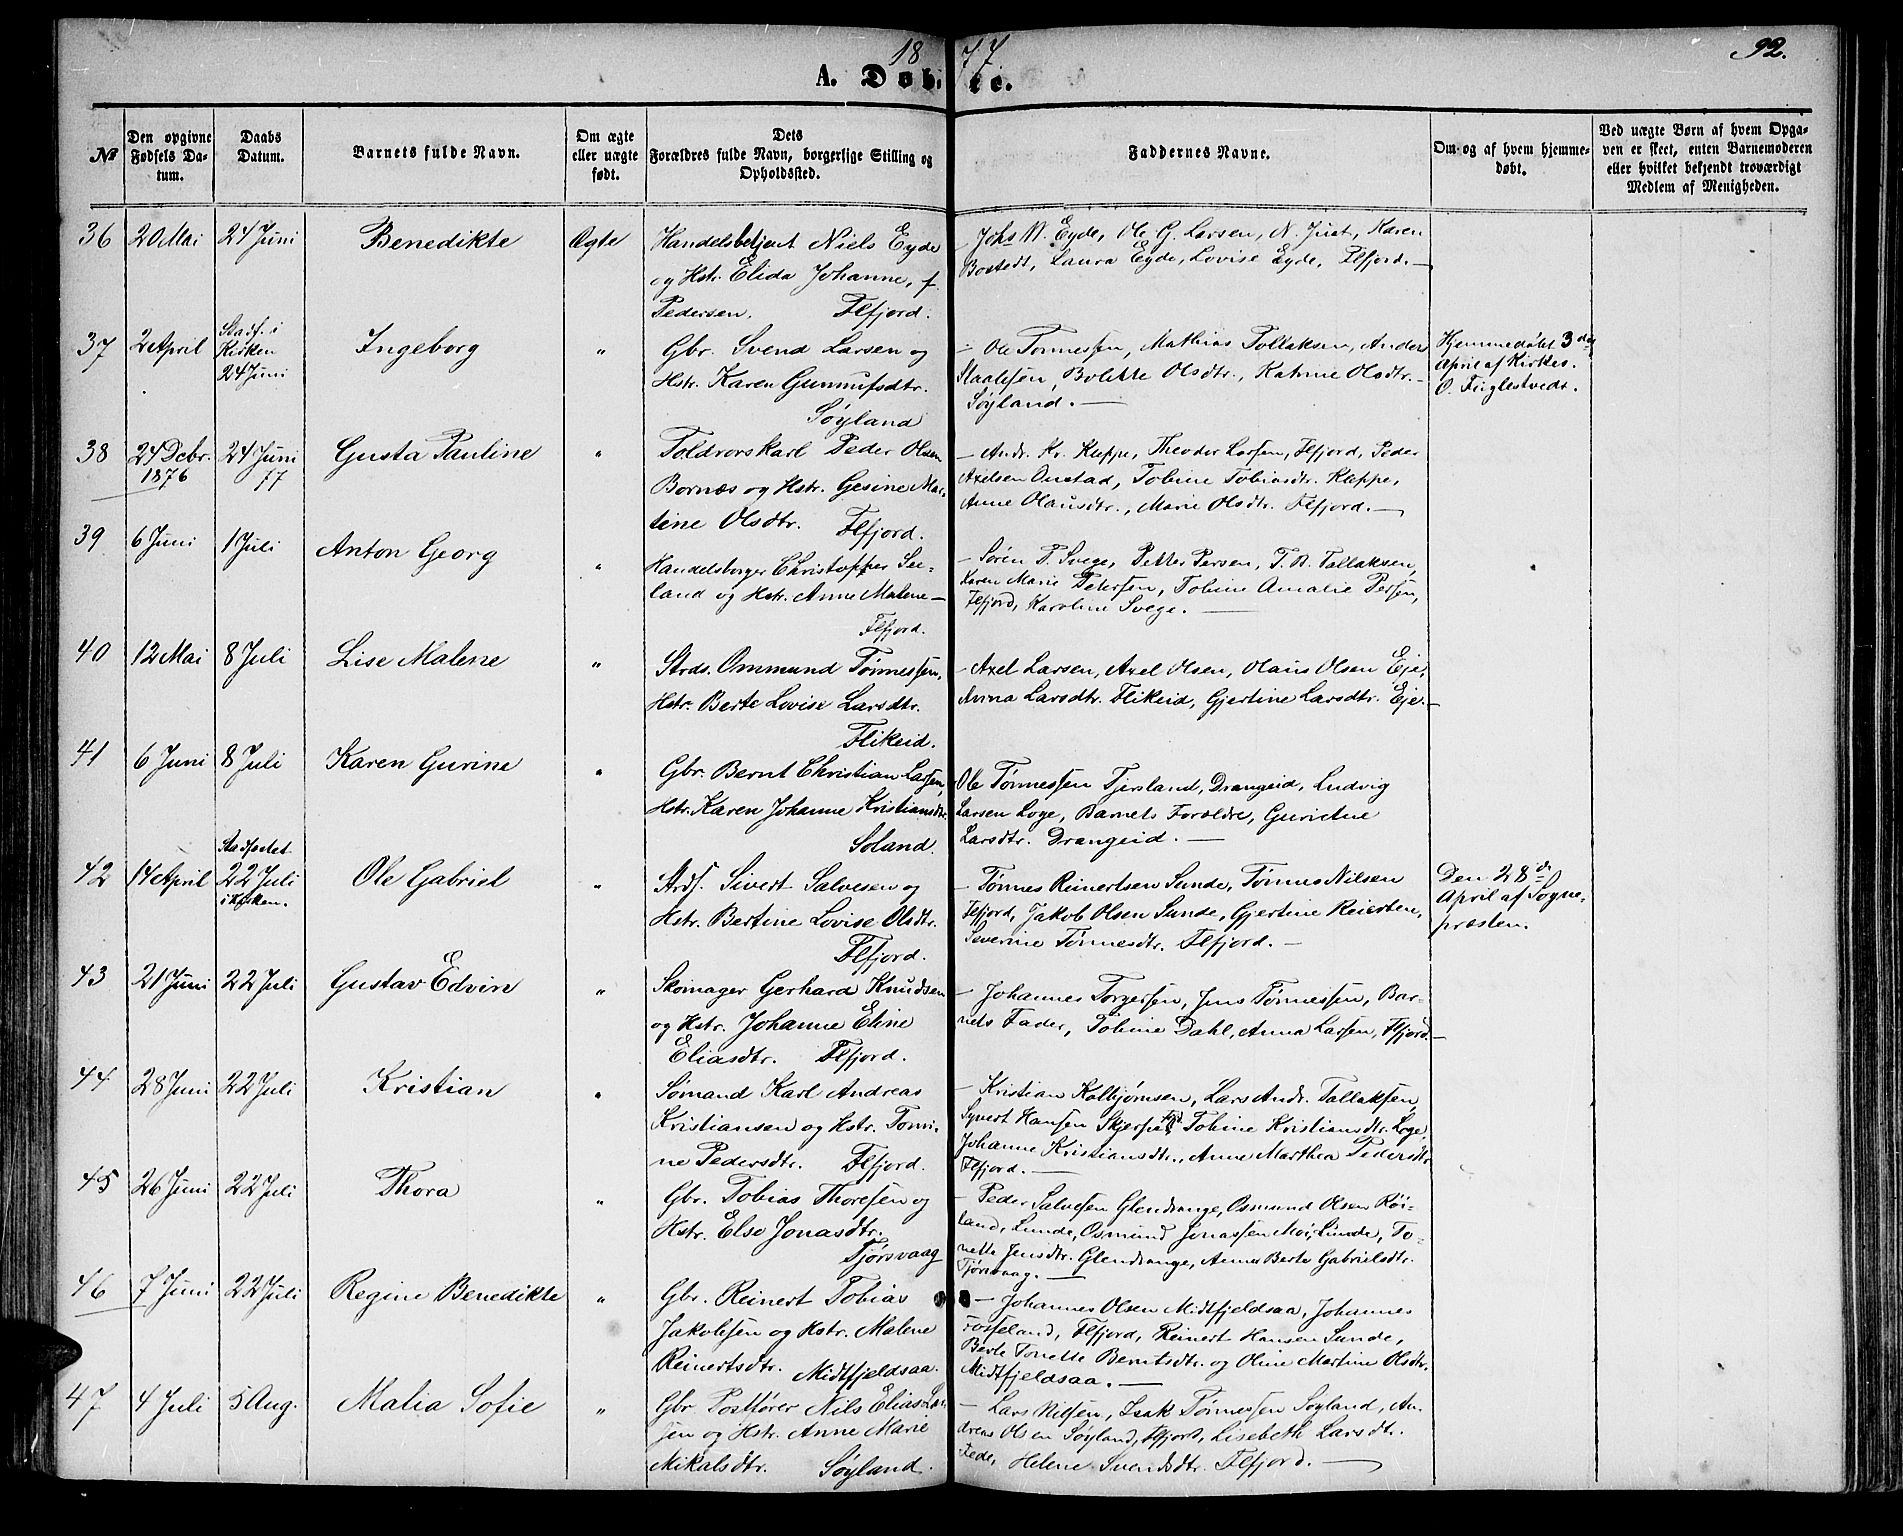 1877.
92.
A. Døbte.
No
Den opgivne Fødsels Datum.
Daabs Datum.
Barnets fulde Navn.
Om ægte eller uægte født.
Dets Forældres fulde Navn, borgerlige Stilling og Opholdssted.
Faddernes Navne.
Om og af hvem hjemmedøbt.
Ved uægte Børn af hvem Opgaven er skeet, enten Barnemoderen eller hvilket bekjendt troværdigt Medlem af Menigheden.
36 20 Mai 24 Juni Benedikte Ægte
Handelsbetjent Niels Eyde
og Hstr. Elida Johanne, f.
Pedersen. Flfjord.
– Johs M. Eyde, Ole G. Larsen, N. Just, Karen
Bostedt, Laura Eyde, Lovise Eyde, Flfjord. –
37 2 April Stadf. i Kirken 24 Juni Ingeborg "
Gbr. Svend Larsen og
Hstr. Karen Gunnufsdtr.
Søyland
– Ole Tønnessen, Mathias Tollaksen, Anders
Staalesen, Bolette Olsdtr., Kathrine Olsdtr. –
Søyland. –
Hjemmedøbt 3die
April af Kirkes.
O. Fuglestvedt.
38 24 Debr. 1876 24 Juni 77 Gusta Pauline "
Toldrorskarl Peder Olsen
Bornæs og Hstr. Gesine Mar-
tine Olsdtr. Flfjord.
– Andr. Kr. Kuppe, Theodor Larsen, Flfjord, Peder
Axelsen Onstad, Tobine Tobiasdtr. Kleppe,
Anne Olausdtr., Marie Olsdtr. Flfjord. –
39 6 Juni 1 Juli Anton Georg "
Handelsborger Christopher See-
land og Hstr. Anne Malene –
Flfjord.
– Søren P. Svege, Petter Persen, T. A. Tallaksen,
Karen Marie Petersen, Tobine Amalie Persen,
Flfjord, Karoline Svege. –
40 12 Mai 8 Juli Lise Malene "
Strds. Ommund Tønnessen,
Hstr. Berte Lovise Larsdtr.
Flikeid.
– Axel Larsen, Axel Olsen, Olaus Olsen Eje,
Anna Larsdtr. Flikeid, Gjertine Larsdtr. Eje. –
41 6 Juni 8 Juli Karen Gurine "
Gbr. Bernt Christian Larsen,
Hstr. Karen Johanne Kristiansdtr.
Soland.
Ole Tønnessen Tjersland, Drangeid, Ludvig
Larsen Loge, Barnets Forældre, Gurine
Larsdtr. Drangeid. –
42 14 April Stadfæstet 22 Juli i Kirken. Ole Gabriel "
Ardf. Sivert Salvesen og
Hstr. Bertine Lovise Olsdtr.
Flfjord.
– Tønnes Reinertsen Sunde, Tønnes Nilsen
Flfjord, Jakob Olsen Sunde, Gjertine Reiersen,
Severine Tønnesdtr. Flfjord. –
Den 28de
April af Sogne-
præsten.
43 21 Juni 22 Juli Gustav Edvin "
Skomager Gerhard Knudsen
og Hstr. Johanne Eline
Eliasdtr. Flfjord.
– Johannes Torgersen, Jens Tønnessen, Bar-
nets Fader, Tobine Dahl, Anna Larsen, Flfjord. –
44 28 Juni 22 Juli Kristian "
Sømand Karl Andreas
Kristiansen og Hstr. Tomi-
ne Pedersdtr. Flfjord.
– Kristian Kolbjørnsen, Lars Andr. Tallaksen,
Syvert Hansen Skjerpe, Tobine Kristiansdtr. Loge,
Johanne Kristiansdtr., Anne Marthea Pedersdtr.
Flfjord. –
45 26 Juni 22 Juli Thora "
Gbr. Tobias Thoresen og
Hstr. Else Jonasdtr.
Tjørsvaag
– Peder Salvesen Glendrange, Osmund Olsen Røi-
land, Lunde, Osmund Jonassen Moi, Lunde, To-
nette Jensdtr. Glendrange, Anne Berte Gabrielsdtr.
Tjørsvaag. –
46 7 Juni 22 Juli Regine Benedikte "
Gbr. Reinert Tobias
Jakobsen og Hstr. Malene
Reinertsdtr. Midtfjeldsaa.
– Johannes Olsen Midtfjeldsaa, Johannes
Fosseland, Flfjord, Reinert Hansen Sunde,
Berte Tonette Berntsdtr. og Oline Martine Olsdtr.
Midtfjeldsaa. –
47 4 Juli 5 Aug. Malia Sofie "
Gbr. Postfører Nils Elias Lar-
sen og Hstr. Anne Marie
Mikalsdtr. Søyland.
– Lars Nilsen, Isak Tønnessen Søyland, An-
dreas Olsen Søyland, Flfjord, Lisebeth Larsdtr.
Fede, Helene Svendsdtr. Flfjord. –